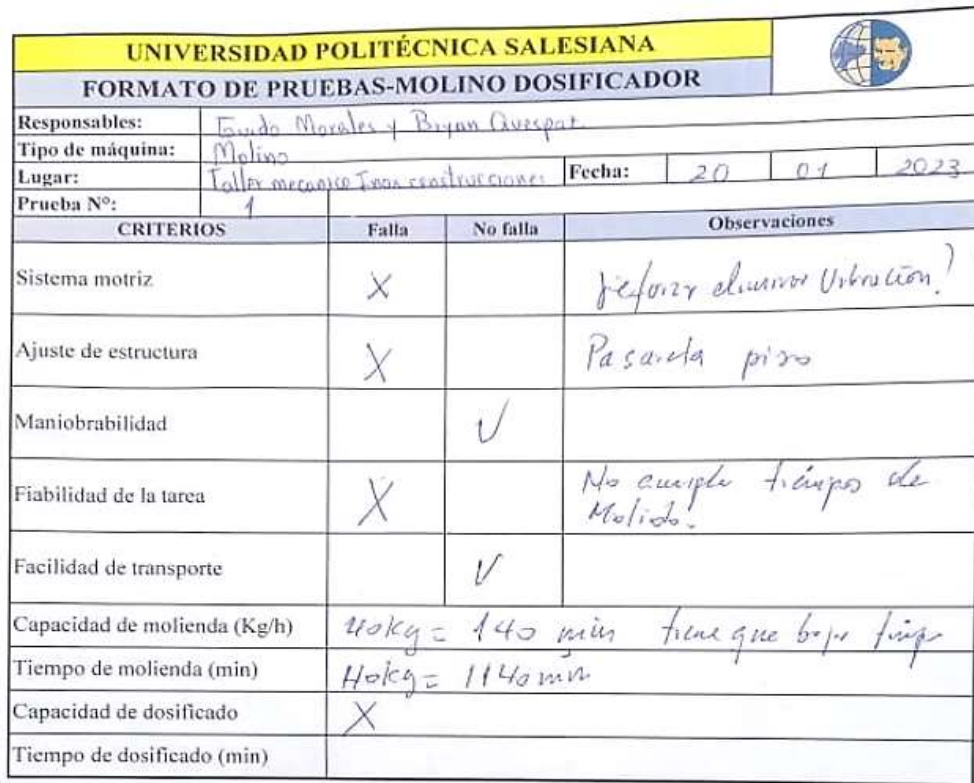 UNIVERSIDAD POLITÉCNICA SALESIANA
FORMATO DE PRUEBAS-MOLINO DOSIFICADOR
Responsables: Guido Morales y Bryan
Tipo de máquina: Molino
Lugar: Taller mecanico Inox construcciones Fecha: 20 01 2023
Prueba Nº: 1
CRITERIOS Falla No falla Observaciones
Sistema motriz X Vibración
Ajuste de estructura X piso
Maniobrabilidad √
Fiabilidad de la tarea X No cumple tiempos de
Molido.
Facilidad de transporte √
Capacidad de molienda (Kg/h) 40kg = 140 min tiene que
Tiempo de molienda (min) 40kg = 1140 min
Capacidad de dosificado X
Tiempo de dosificado (min)